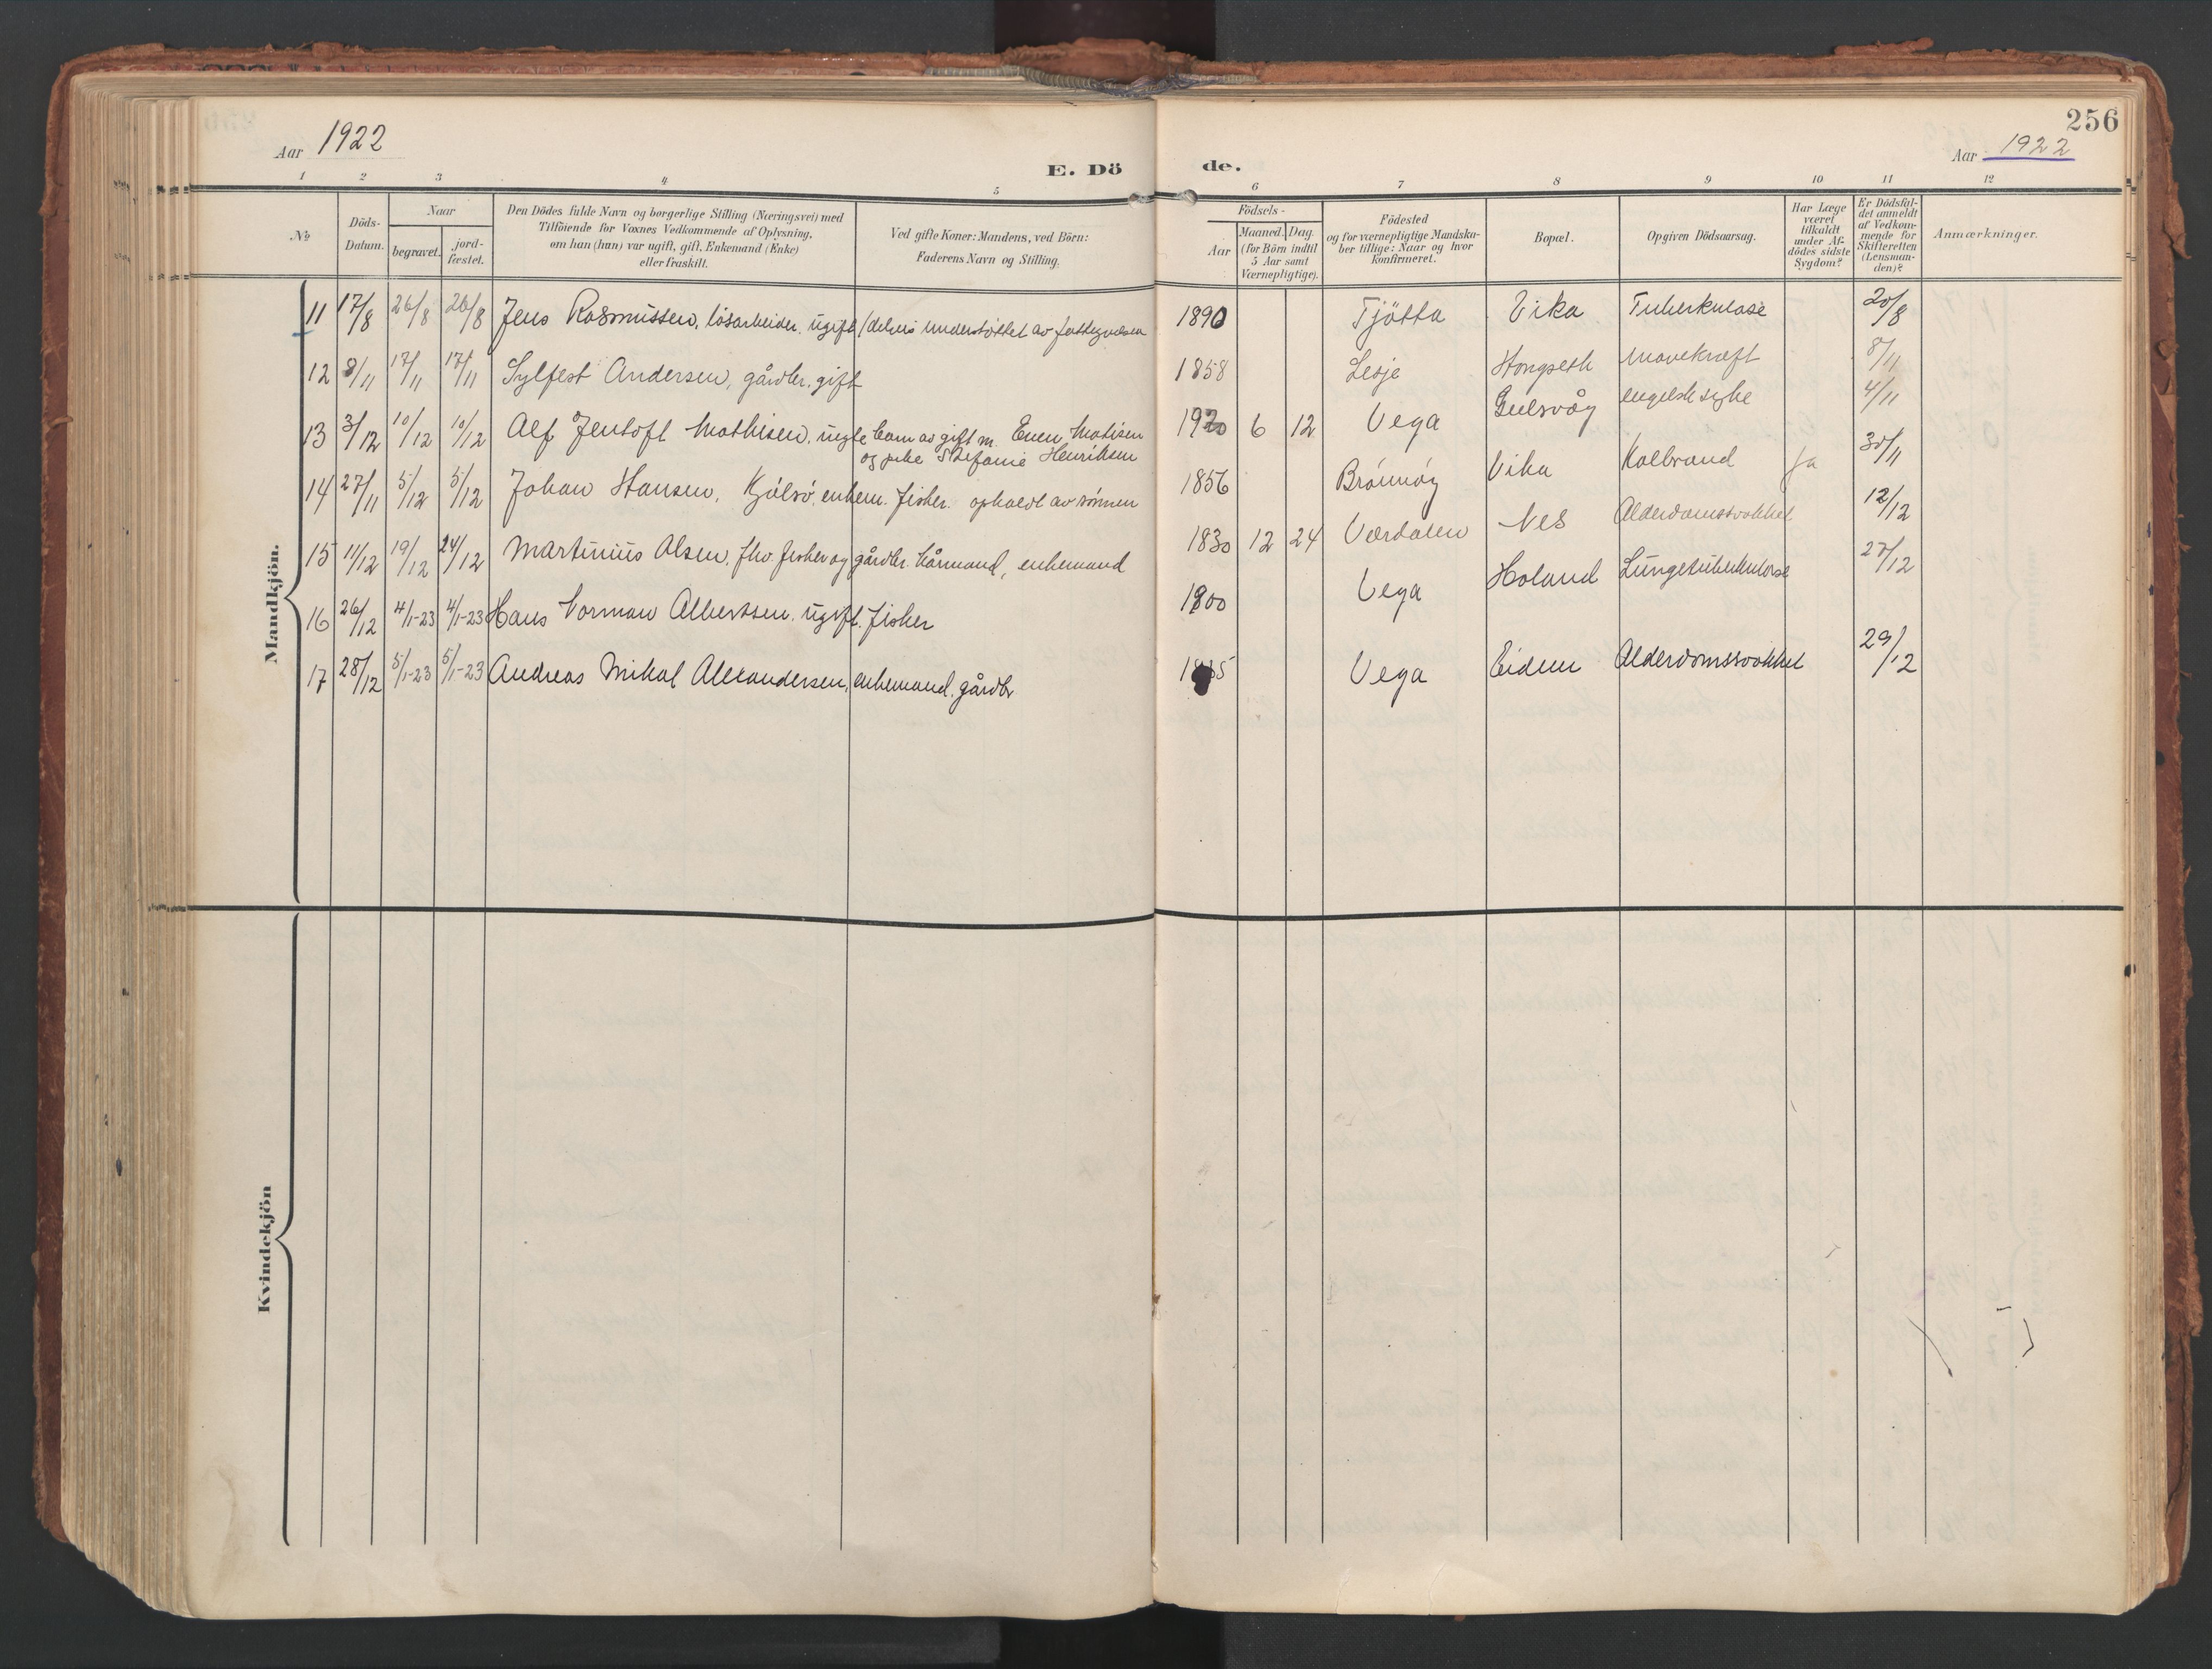 Aar 1922
E. Dö
de.
256
Aar 1922
1 2 3 4 5 6 7 8 9 10 11 12
№
Döds-
Datum.
Naar
begravet.
jord-
fæstet.
Den Dödes fulde Navn og borgerlige Stilling (Næringsvei) med
Tilföiende for Voxnes Vedkommende af Oplysning,
om han (hun) var ugift, gift, Enkemand (Enke)
eller fraskilt.
Ved gifte Koner: Mandens, ved Börn:
Faderens Navn og Stilling.
Födsels-
Aar
Maaned. Dag.
(for Börn indtil
5 Aar samt
Værnepligtige).
Födested
og for værnepligtige Mandska-
ber tillige: Naar og hvor
konfirmeret.
Bopæl.
Opgiven Dödsaarsag.
Har Læge
været
tilkaldt
under Af-
dödes sidste
Sygdom?
Er Dödsfal-
det anmeldt
af Vedkom-
mende for
Skifteretten
(Lensman-
den)?
Anmærkninger.
Mandkjön.
11 17/8 26/8 26/8 Jens Rasmussen, løsarbeider, ugift (delvis understøttet av fattigvæsen 1890 Tjøtta Vika Tuberkulose 20/8
12 8/11 17/11 17/11 Sylfest Andersen, gårdbr. gift 1858 Lesje Hongseth Mavekræft 8/11
13 3/12 10/12 10/12 Alf Jentoft Mathisen, barn av gift m. Even Matisen 1920 6 12 Vega Gulsvåg engelsk syke 4/11
og pike Stefanie Henriksen
14 27/11 5/12 5/12 Johan Hansen, Kjølsø, enkem. fisker. opholdt av sønnen 1856 Brønnøy Vika Kolbrand Ja 30/11
15 11/12 19/12 24/12 Martinius Olsen, fhv. fisker og gårdbr. kårmand, enkemand 1830 12 24 Værdalen Nes Alderdomssvakhet 12/12
16 26/12 4/1-23 4/1-23 Hans Norman Albertsen, ugift. fisker 1900 Vega Holand Lungetuberkulose 27/12
17 28/12 5/1-23 5/1-23 Andreas Mikal Alexandersen, enkemand, gårdbr Vega Eidem Alderdomssvakhet 29/12
Kvindekjön